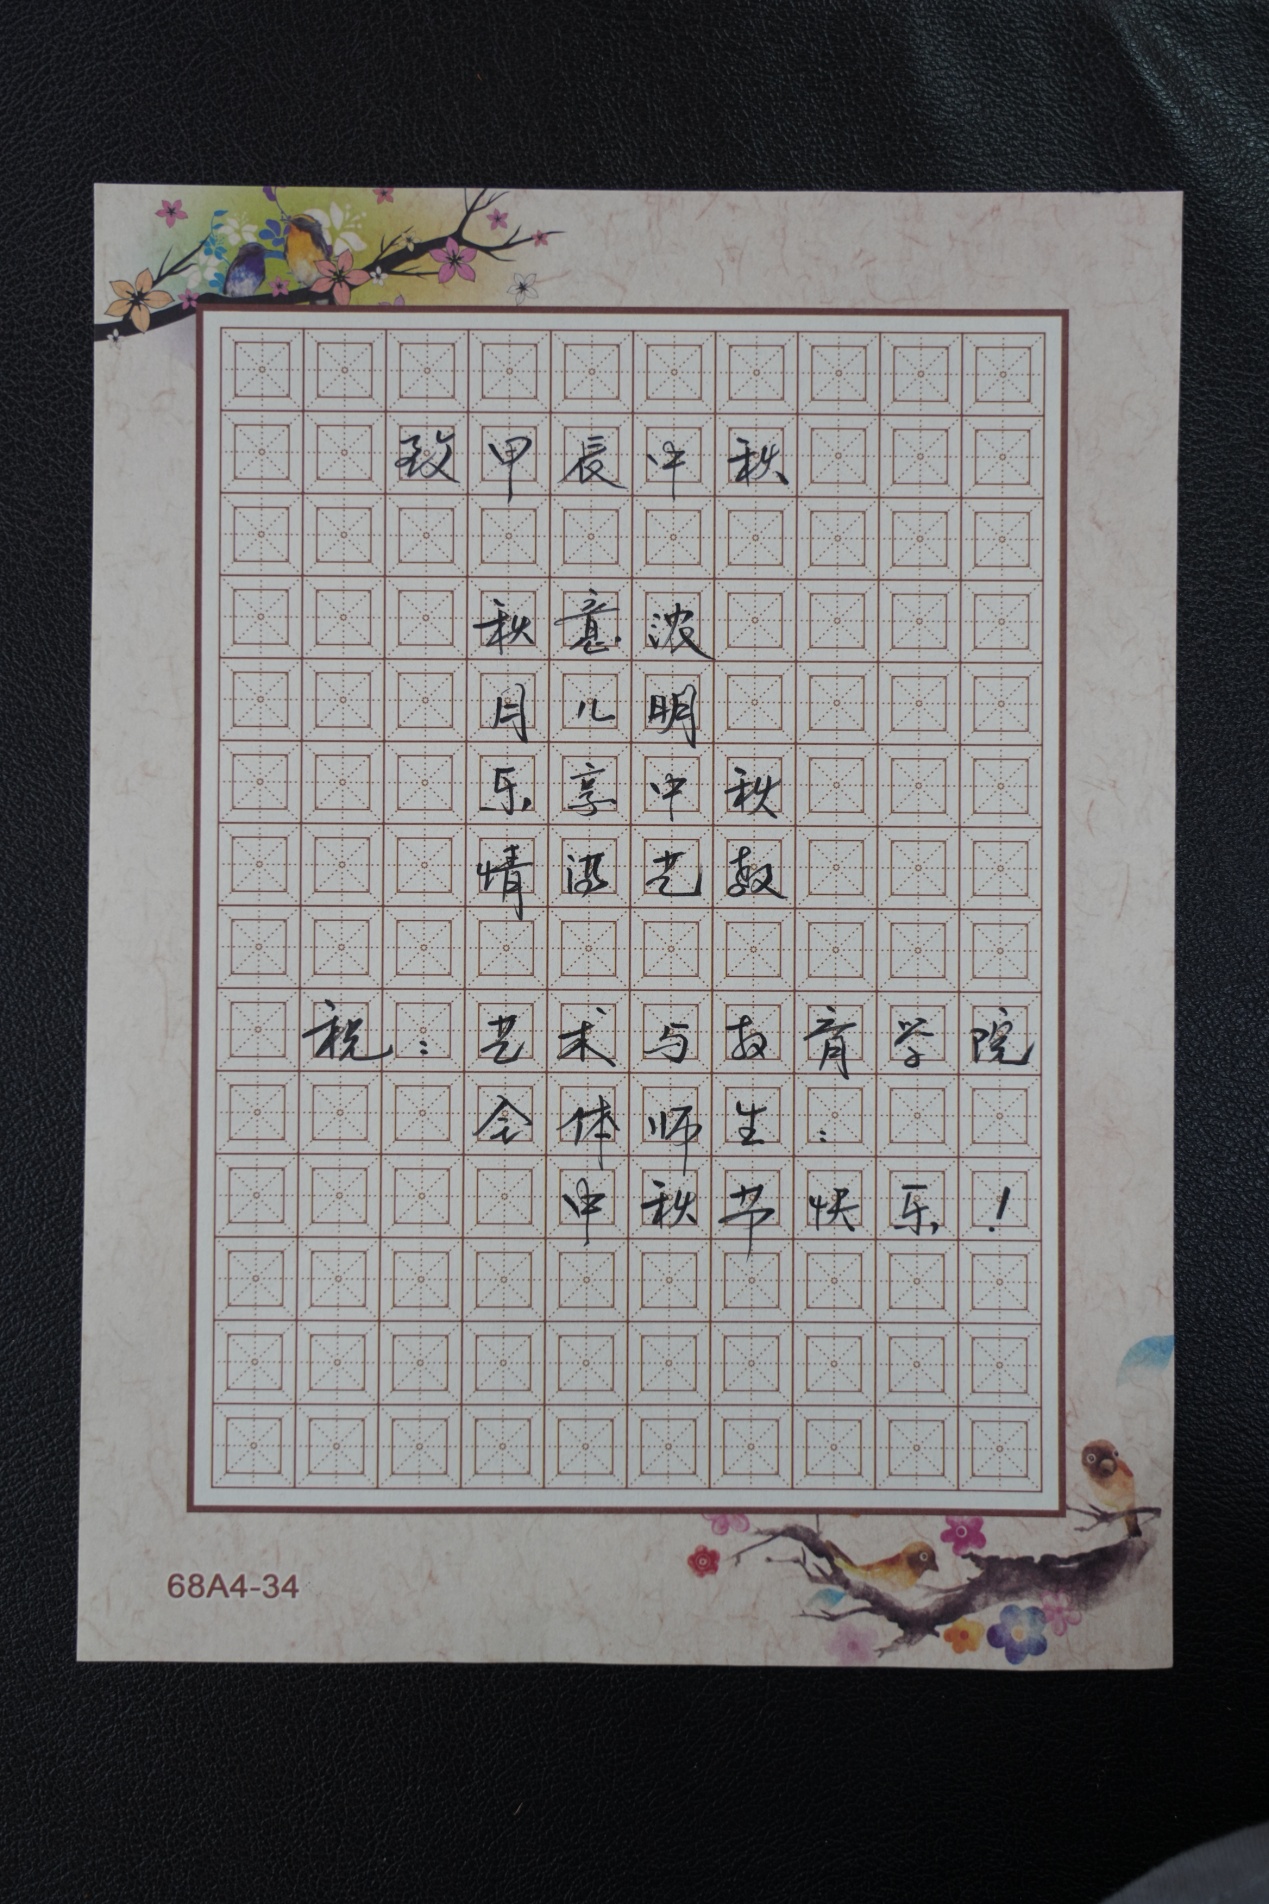 致甲辰中秋
秋意浓
月儿明
乐享中秋
情溢艺教
祝：艺术与教育学院
全体师生：
中秋节快乐！
68A4-34